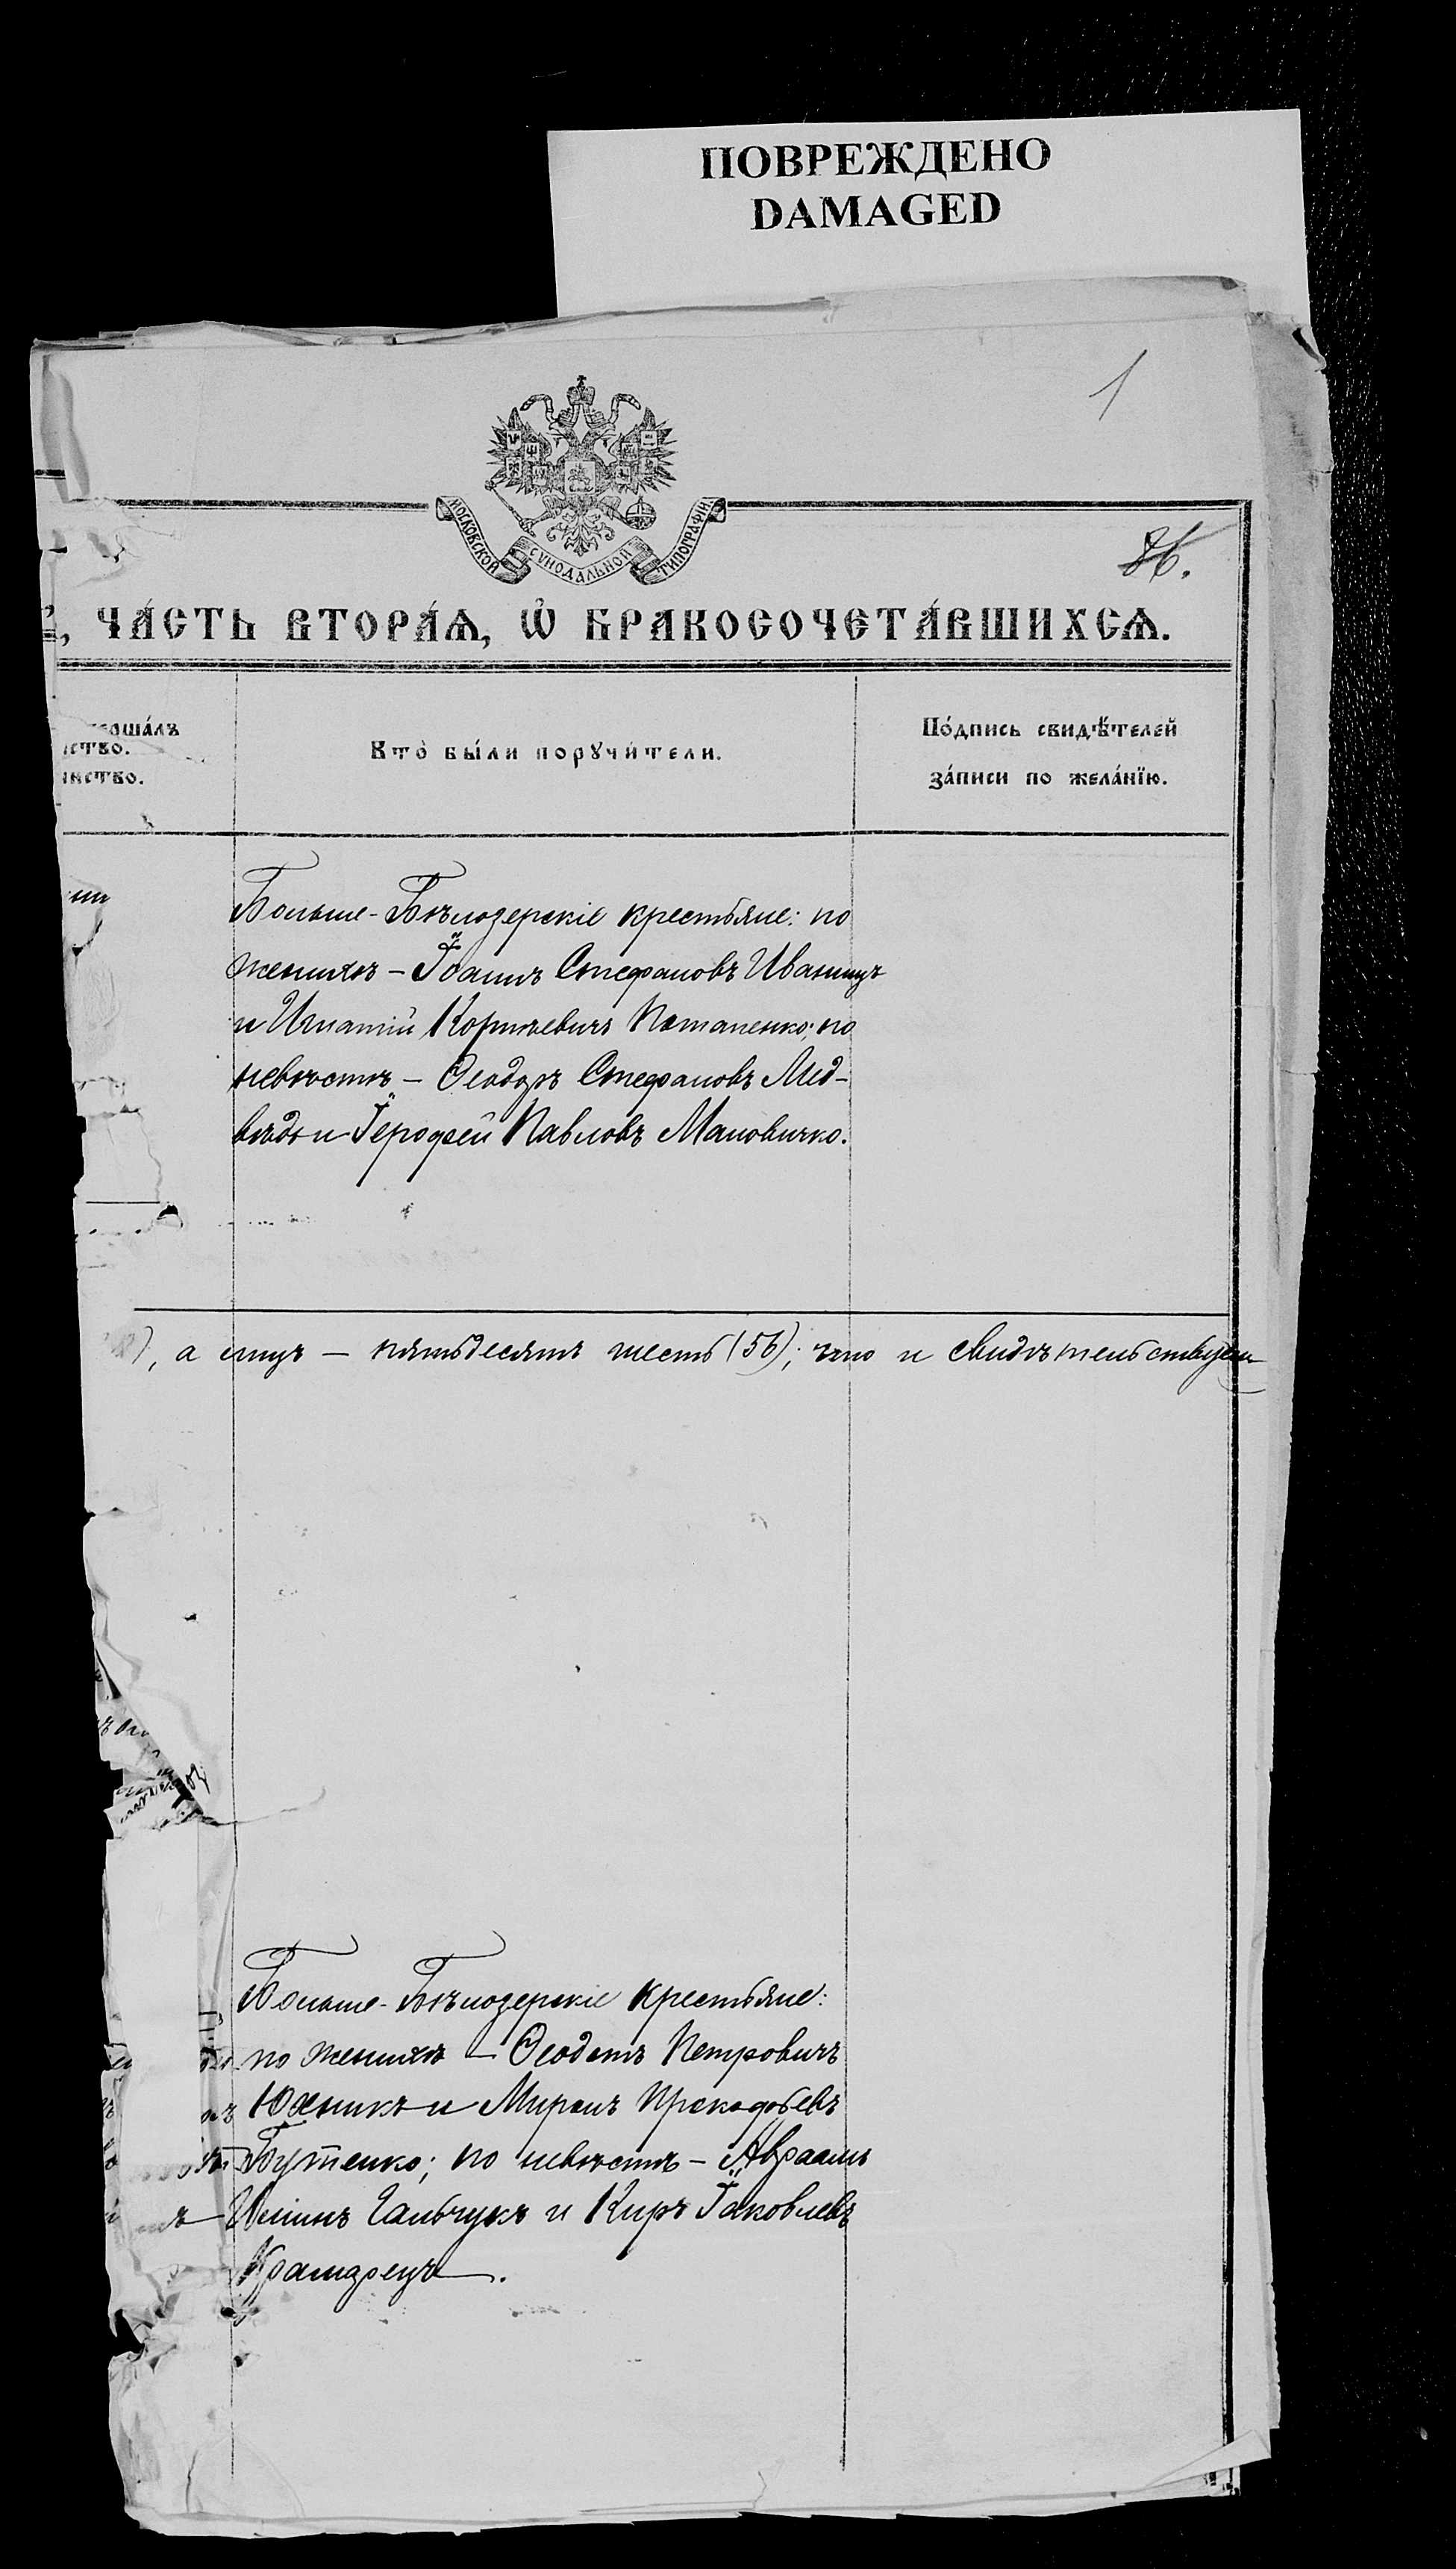 ПОВРЕЖДЕНО
DAMAGED
1
МОСКОВСКОЙ СѴНОДАЛЬНОЙ ТИПОГРАФІИ.
86.
, ЧА́СТЬ ВТОРА́Ѧ, Ѡ҆ БРАКОСОЧЕТА́ВШИХСѦ.
ршáлъ
ство.
нство.
Кто̀ бы́ли порꙋчи́тели.
По́дпись свидѣ́телей
за́писи по жела́нїю.
Больше-Бѣлозерскіе крестьяне: по
женихѣ – Іоаннъ Стефановъ Иваницъ
и Игнатій Корнѣевичъ Потапенко; по
невѣстѣ – Ѳеодоръ Стефановъ Мед-
вѣдь и Іерофей Павловъ Мановичко.
), а лицъ – пятьдесятъ шесть (56); что и свидѣтельствуемъ
Больше-Бѣлозерскіе крестьяне:
по женихѣ – Ѳеодотъ Петровичъ
Юхникъ и Миронъ Прокофьевъ
Бутенко; по невѣстѣ – Авраамъ
Иліинъ Гальчукъ и Киръ Іаковлевъ